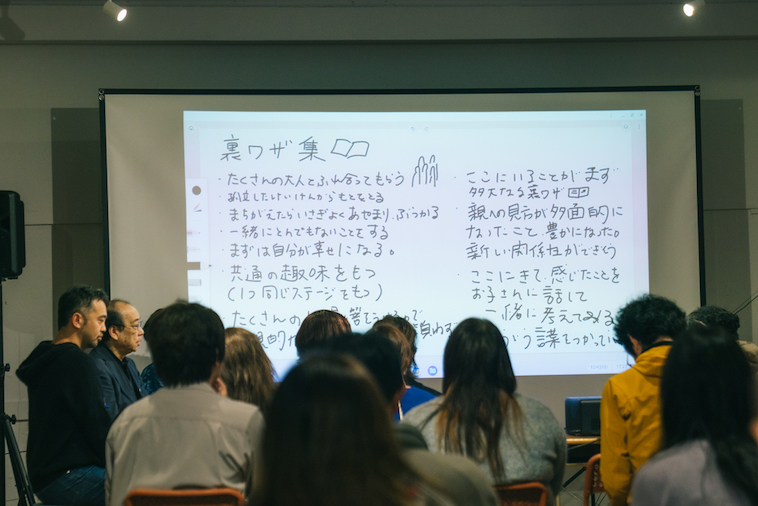 裏ワザ集
・たくさんの大人とふれ合ってもらう
・まちがえたらいさぎよくあやまり、ぶつかる
・一緒にとんでもないことをする
・まずは自分が幸せになる。
・共通の趣味をもつ
(1つ同じステージでもつ)
たくさんの
・ここにいることがまず
多大なる裏ワザ
・親への見方が多面的に
なったこと、豊かになった。
新しい関係性ができそう
・ここにきて、感じたことを
お子さんに話して
一緒に考えてみる